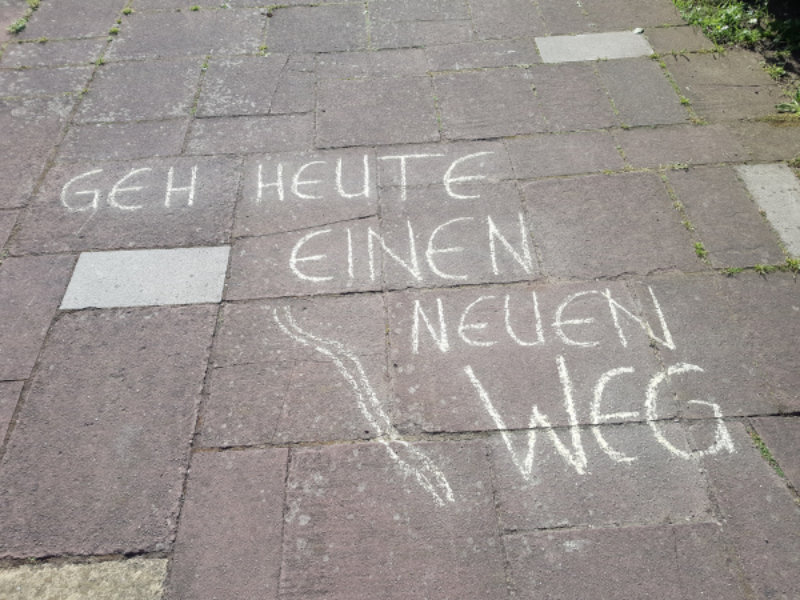 GEH HEUTE
EINEN
NEUEN
WEG